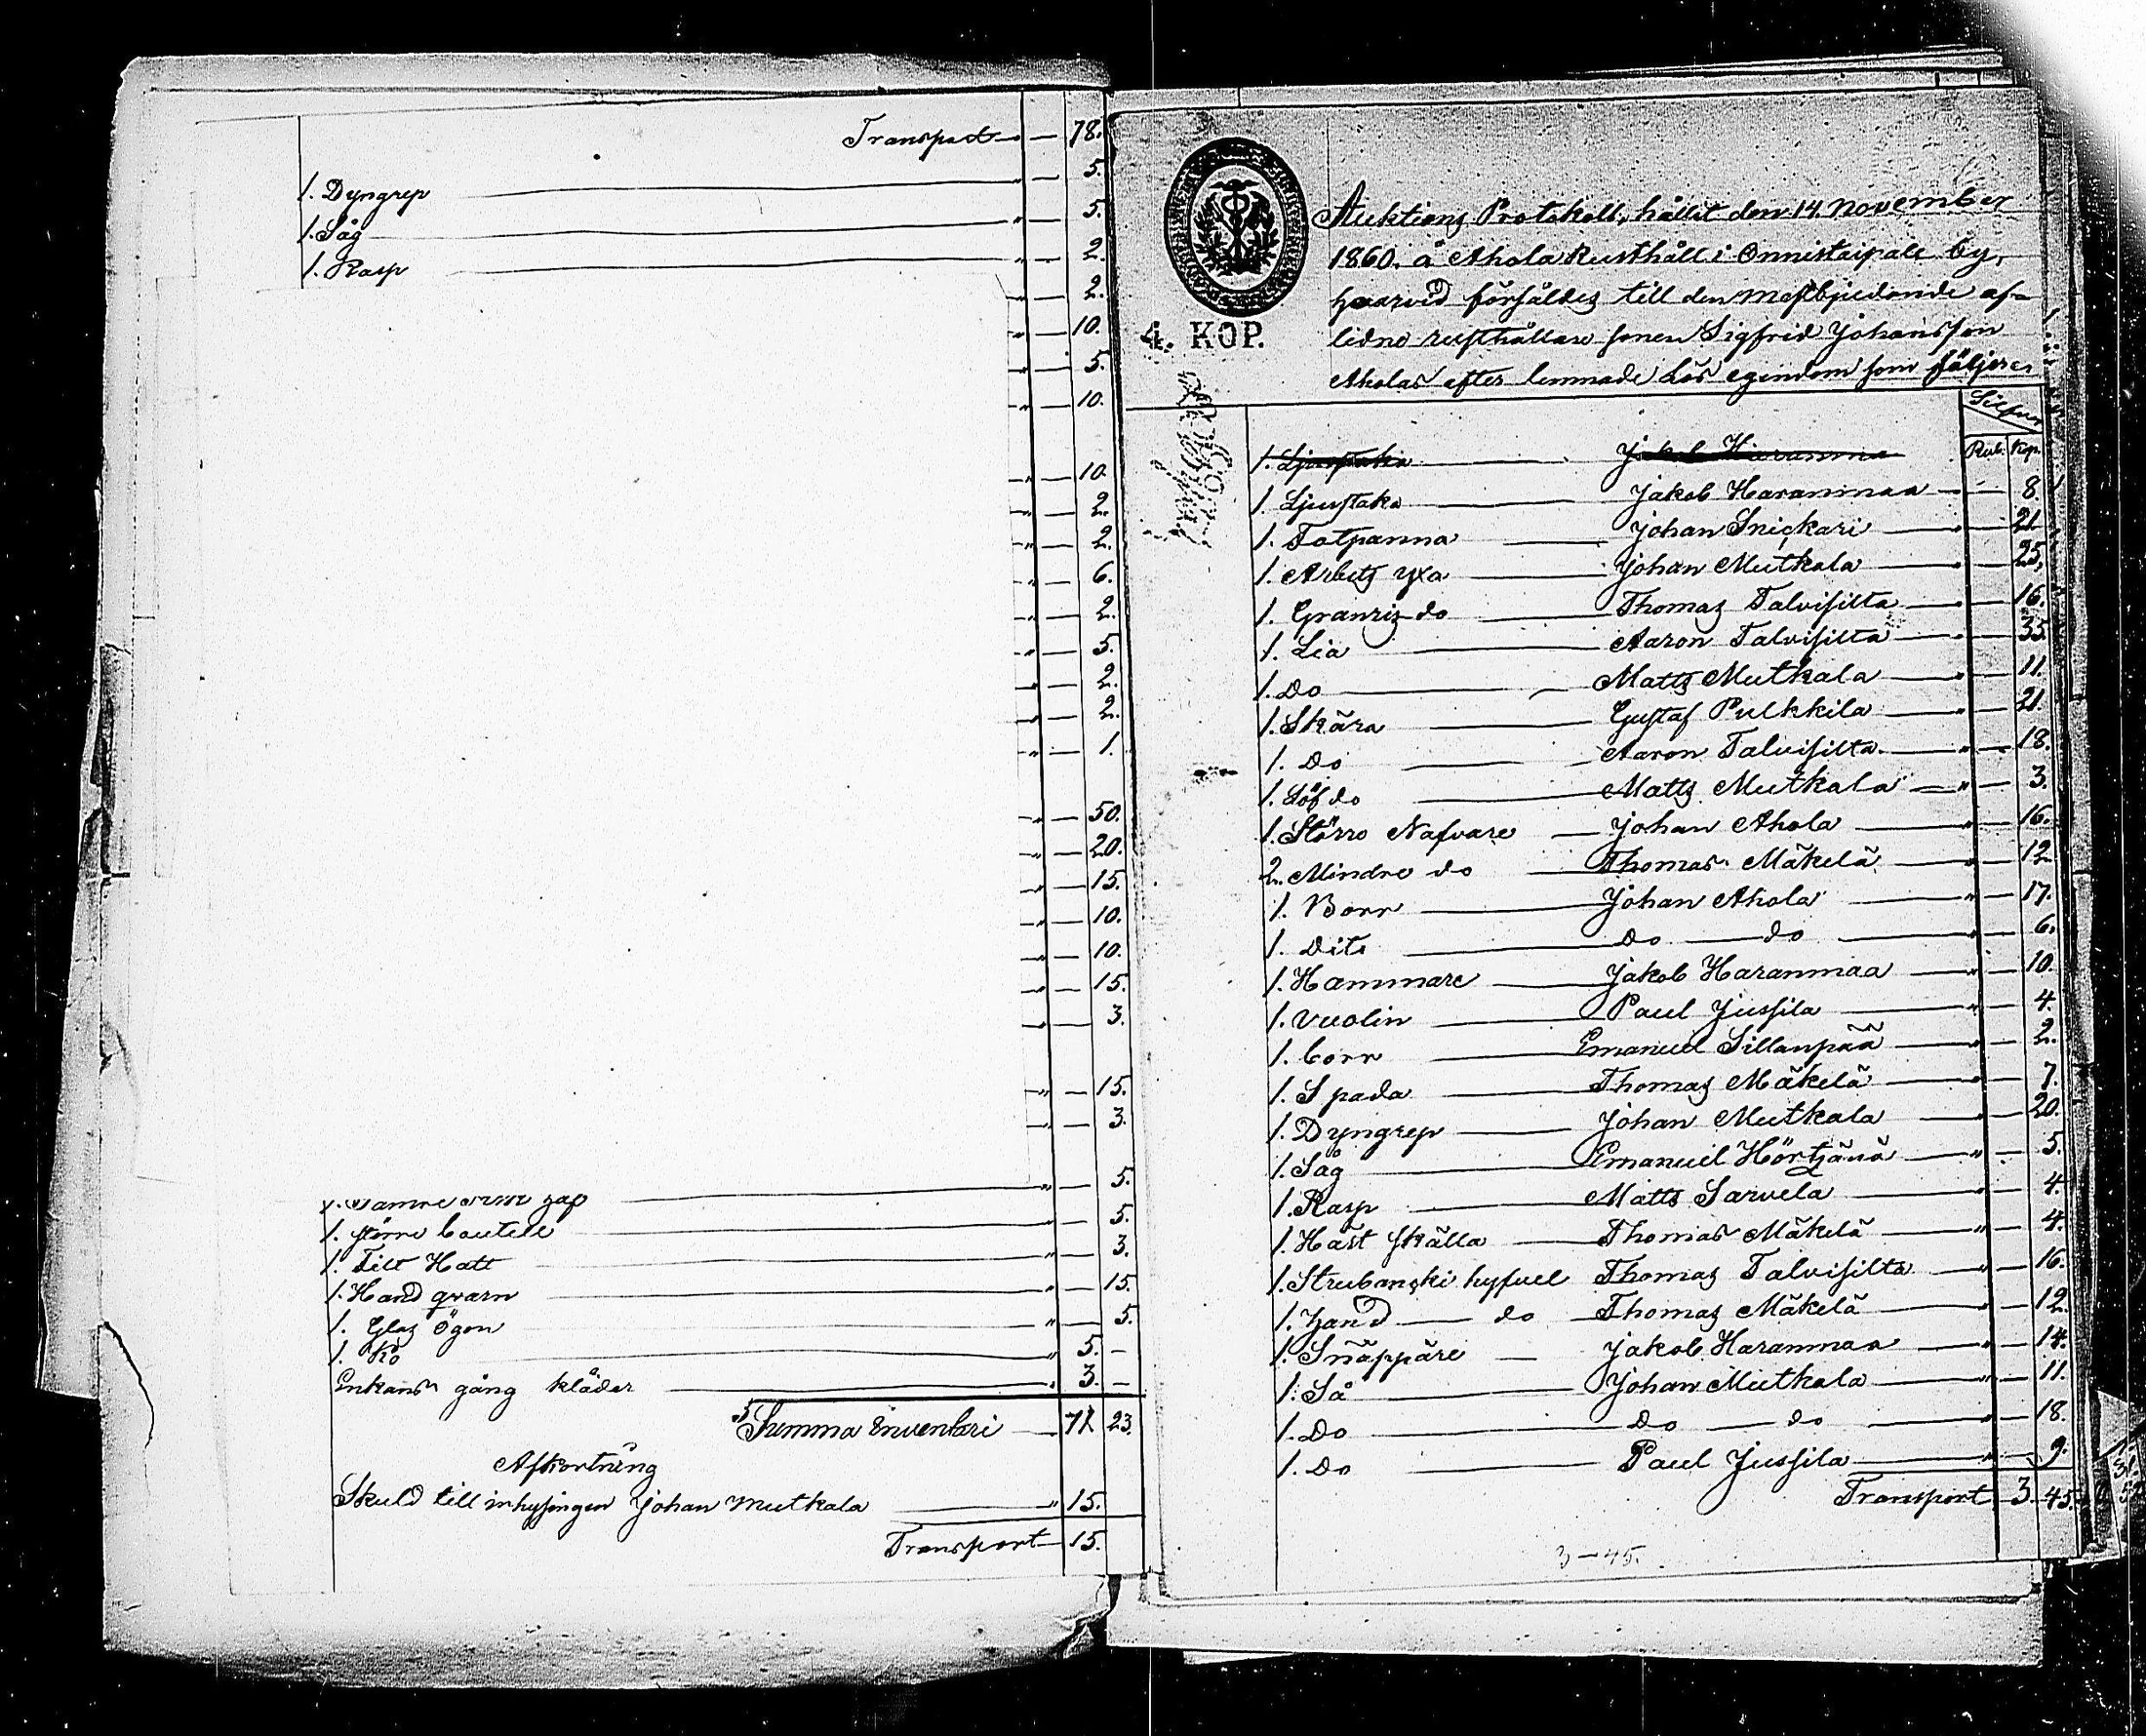 Transport — 78.
1. Dyngrep — " — 5.
1. Såg — " — 5.
1. Rasp — " — 2.
" — 2.
" — 10.
" — 5.
" — 10.
" — 10.
" — 2.
" — 2.
" — 6.
" — 2.
" — 5.
" — 2.
" — 2.
" — 1.
" — 50.
" — 20.
" — 15.
" — 10.
" — 10.
" — 15.
" — 3.
" — 15.
" — 3.
" — 5.
1. större bouteill — " — 5.
1. Filt Hatt — " — 3.
1. Hand qvarn — " — 15.
1. Glas ögon — " — 5.
1. Ko — " 5. —
Enkans gång kläder — " 3. —
Summa Inventari — 71 23.
Afkortning
Skuld till inhysingen Johan Mutkala — " 15.
Transport — 15.
4. KOP.
Auktions Protokoll, hållit den 14 November
1860. å Ahola Rusthåll i Onnistaipale by,
hvarvid försåldes till den mestbjudande af-
lidne rusthållare sonen Sigfrid Johansson
Aholas efter lemnade Lös egendom som följer
Silfver
Rub. Kop.
1. Ljustaka — Jakob Haranmaa
1. Ljustaka — Jakob Haranmaa — " — 8.
1. Fotpanna — Johan Snickari — " — 21.
1. Arbets yxa — Johan Mutkala — " — 25.
1. Granris do — Thomas Talvisilta — " — 16.
1. Lia — Aaron Talvisilta — " — 35.
1. Do — Matts Mutkala — " — 11.
1. Skära — Gustaf Pulkkila — " — 21.
1. Do — Aaron Talvisilta — " — 18.
1. Löf do — Matts Mutkala — " — 3.
1. Större Nafvare — Johan Ahola — " — 16.
2. Mindre do — Thomas Mäkelä — " — 12
1. Borr — Johan Ahola — " — 17.
1. Dito — Do — do — " — 6.
1. Hammare — Jakob Haranmaa — " — 10.
1. Vuolin — Paul Jussila — " — 4.
1. borr — Emanuel Sillanpää — " — 2.
1. Spada — Thomas Mäkelä — " — 7.
1. Dyngrep — Johan Mutkala — " — 20.
1. Såg — Emanuel Hörtjänä — " — 5.
1. Rasp — Matts Sarvela — " — 4.
1. Häst skälla — Thomas Mäkelä — " — 4.
1. Strubanski hyfvel Thomas Talvisilta — " — 16.
1. Hand — do — Thomas Mäkelä — " — 12.
1. Snäppäre — Jakob Haranmaa — " — 14.
1. Så — Johan Mutkala — " — 11.
1. Do — Do — do — " — 18.
1. Do — Paul Jussila — " — 9.
Transport 3. 45.
3 — 45.